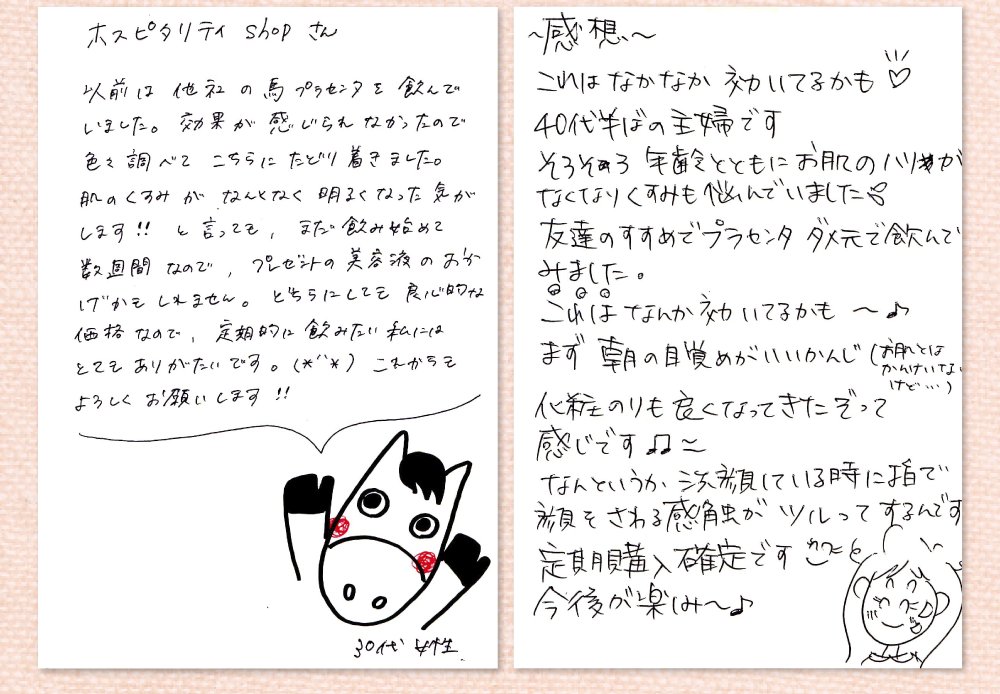 ホスピタリティ shop さん
以前は 他社の馬プラセンタを飲んで
いました。効果が感じられなかったので
色々調べて こちらに たどり着きました。
肌のくすみが なんとなく明るくなった気が
します!! と言っても、まだ飲み始めて
数週間なので、プレゼントの美容液のおか
げかもしれません。どちらにしても良心的な
価格なので、定期的に飲みたい私には
とてもありがたいです。(*^^*) これからも
よろしくお願いします!!
30代 女性
~感想~
これはなかなか効いてるかも♡
40代半ばの主婦です
そろそろ年齢とともにお肌のハリが
なくなりくすみも悩んでいました
友達のすすめでプラセンタ ダメ元で飲んで
みました。
これはなんか効いてるかも~♪
まず朝の目覚めがいいかんじ(お肌とは
かんけいない
けど…)
化粧のりも良くなってきたぞって
感じです♫~
なんというか、洗顔している時に指で
顔をさわる感触がツルってするんです
定期購入確定です
今後が楽しみ~♪